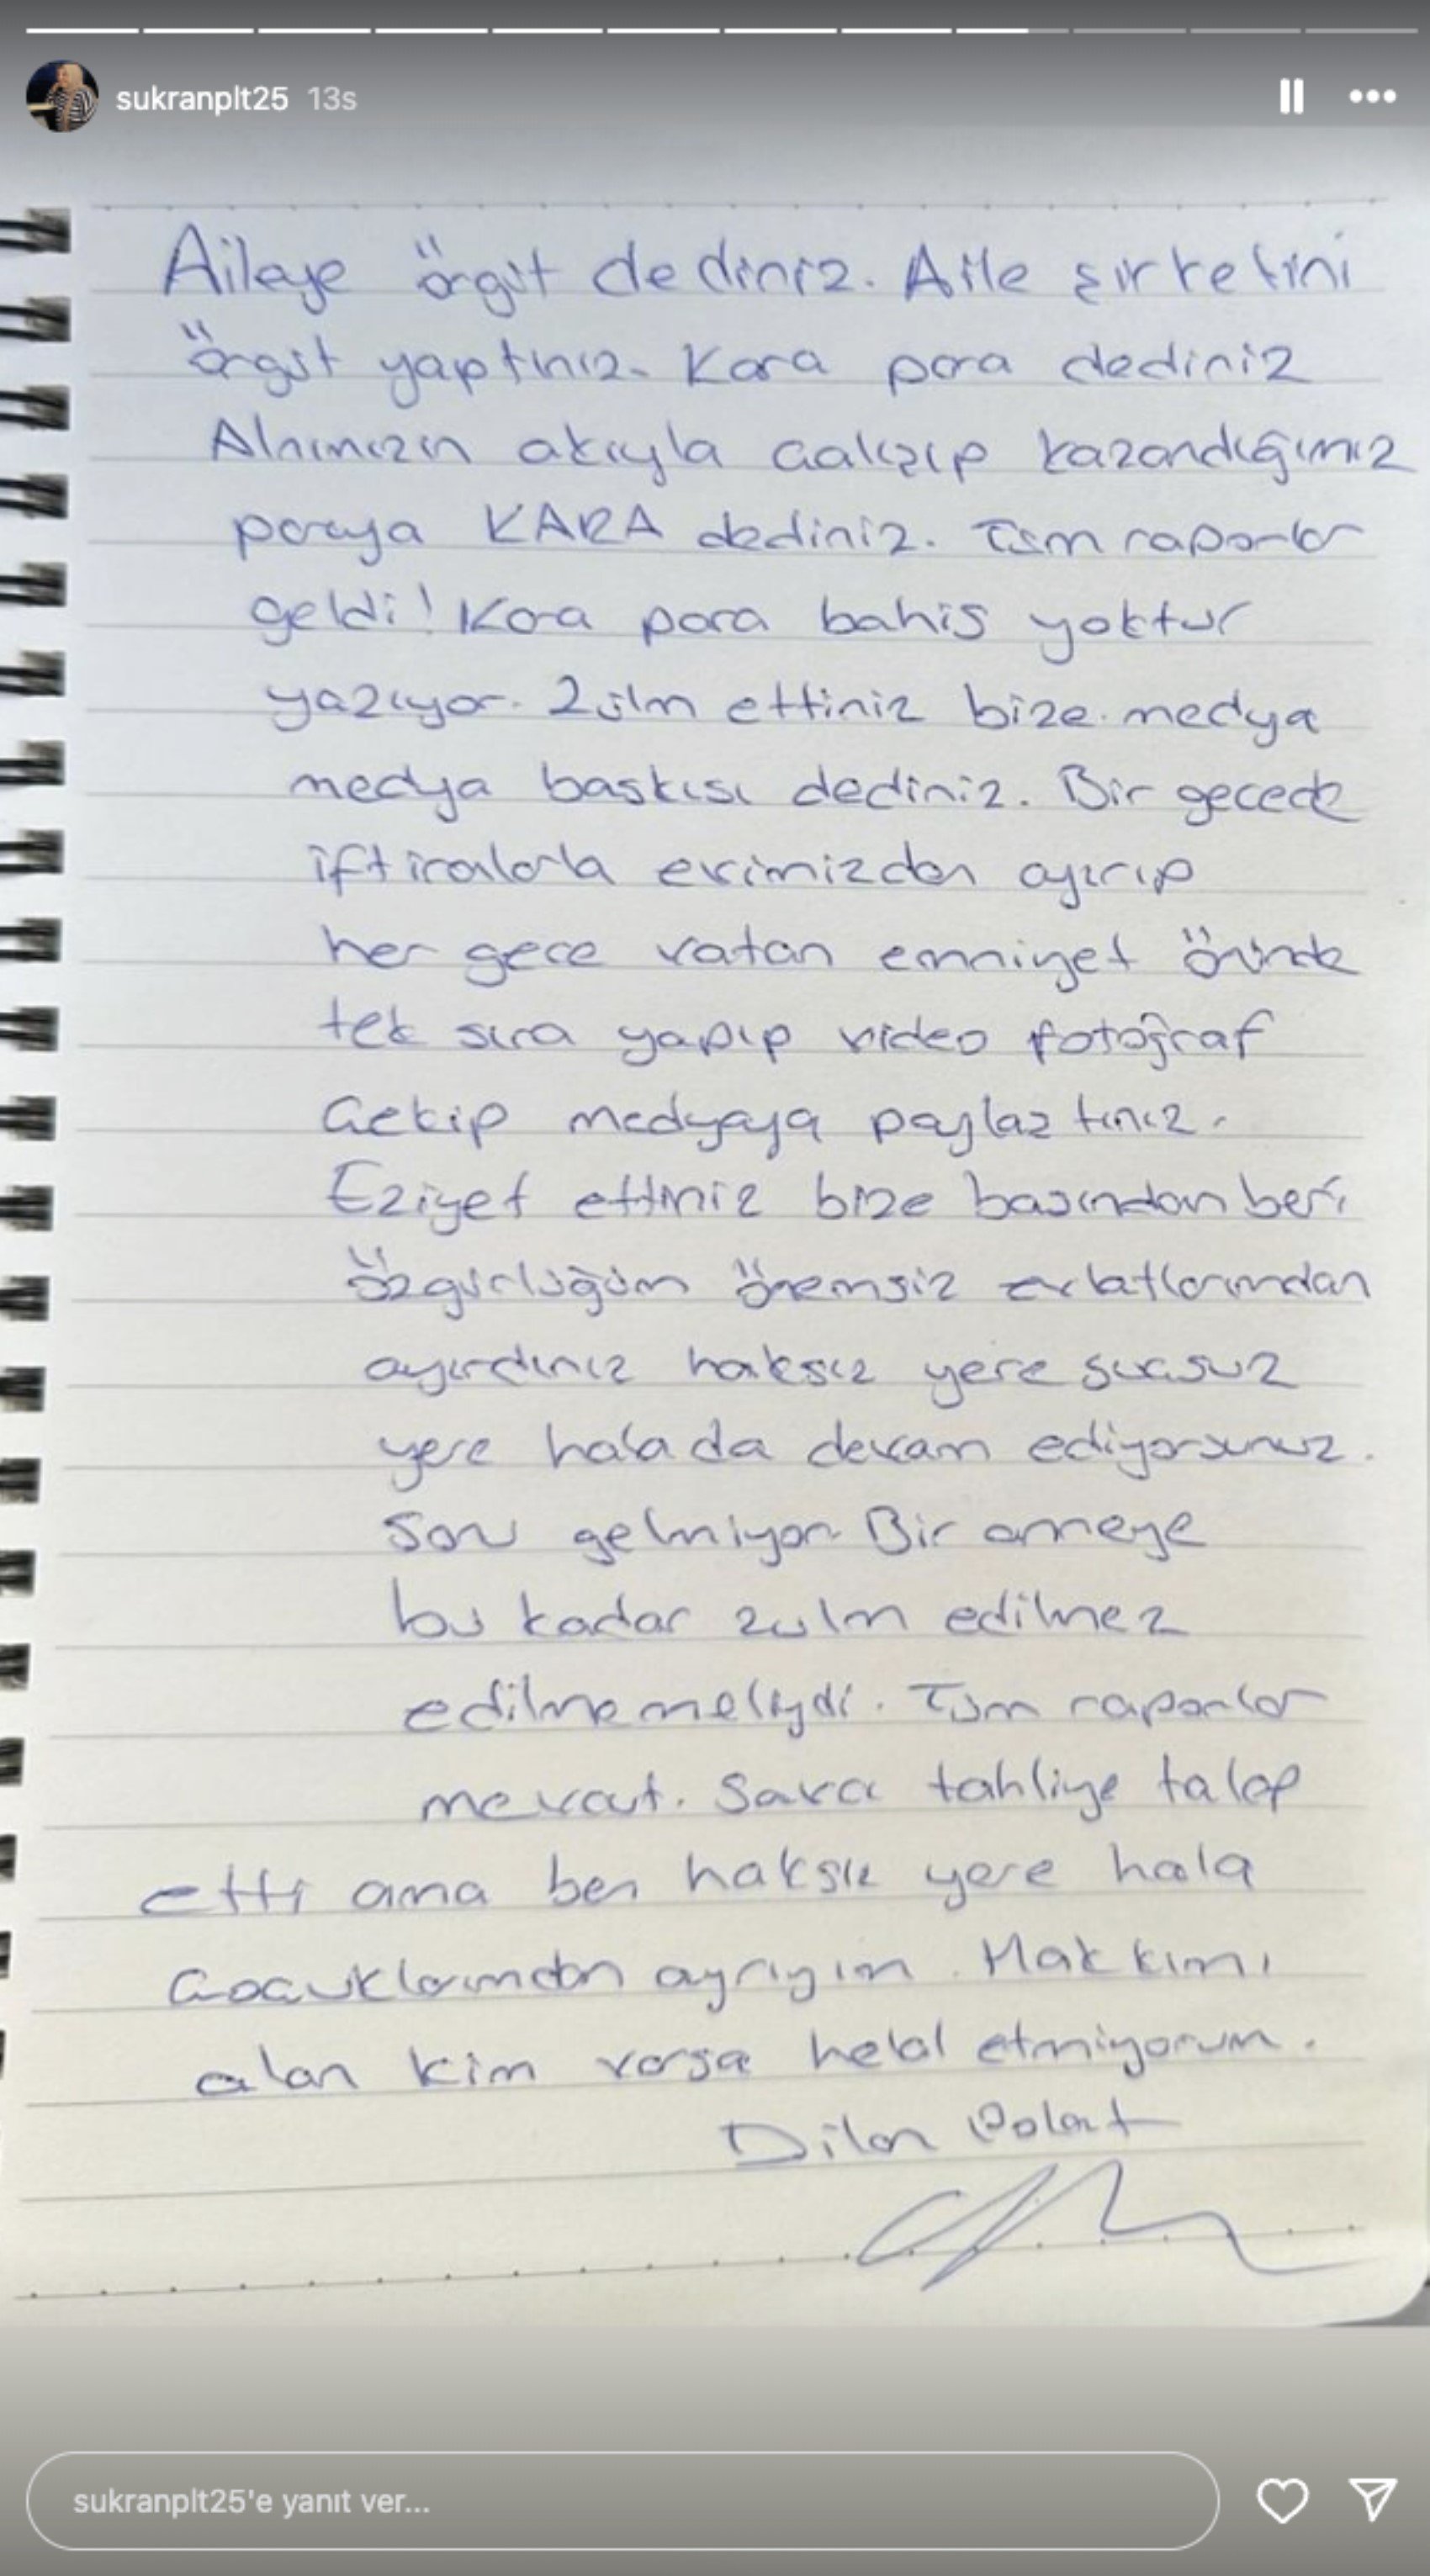 sukranplt25 13s
Aileye örgüt dediniz. Aile şirketini
örgüt yaptınız. Kara para dediniz
Alnımızın akıyla çalışıp kazandığımız
paraya KARA dediniz. Tüm raporlar
geldi! Kara para bahis yoktur
yazıyor. Zülm ettiniz bize. medya
medya baskısı dediniz. Bir gecede
iftiralarla evimizden ayırıp
her gece vatan emniyet önünde
tek sıra yapıp video fotoğraf
Çekip medyaya paylaştınız.
Eziyet ettiniz bize başından beri
özgürlüğüm önemsiz evlatlarımdan
ayırdınız haksız yere suçsuz
yere hala da devam ediyorsunuz.
Sonu gelmiyor. Bir anneye
bu kadar zulm edilmez
edilmemeliydi. Tüm raporlar
mevcut. Savcı tahliye talep
etti ama ben haksız yere hala
Çocuklarımdan ayrıyım. Hakkımı
alan kim varsa helal etmiyorum.
Dilan Polat
sukranplt25'e yanıt ver...